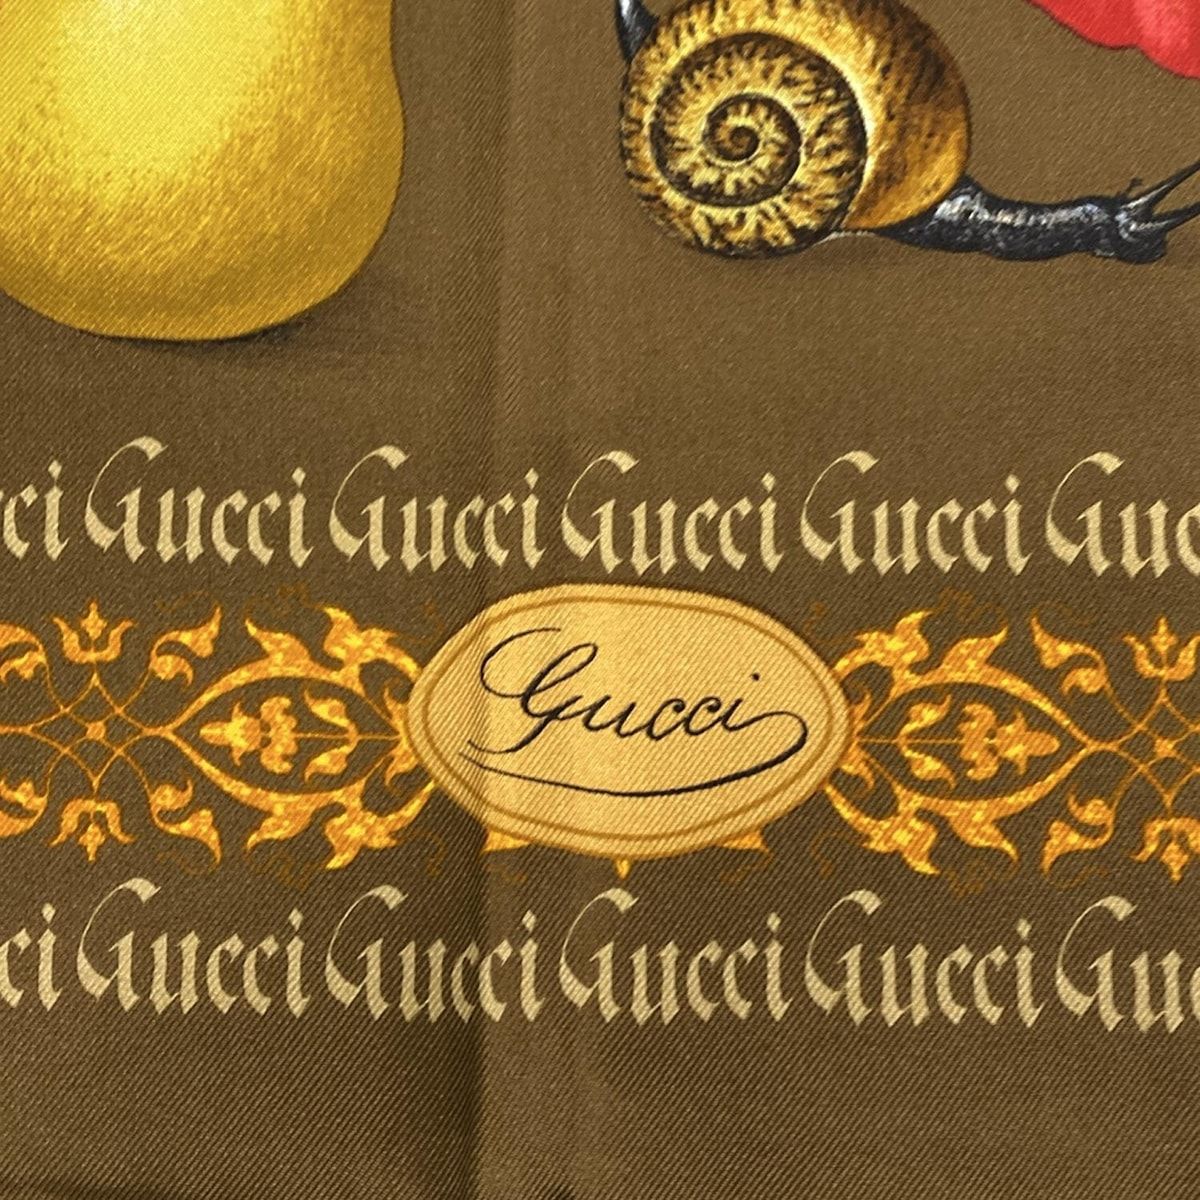 ci Gucci Gucci Gucci Gucci Guc
Gucci
ci Gucci Gucci Gucci Gucci Guc